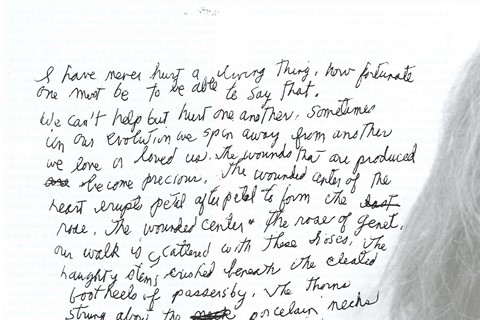 I have never hurt a living thing. how fortunate
one must be to be able to say that.
We can't help but hurt one another. Sometimes
in our evolution we spin away from another
we love or loved us. The wounds that are produced
become precious. The wounded center of the
heart erupts petal after petal to form the last
rose. The wounded center + the roses of Genet.
our walk is scattered with these roses. The
haughty stems crushed beneath the cleated
foot heels of passersby. The thorns
strung above the porcelain necks